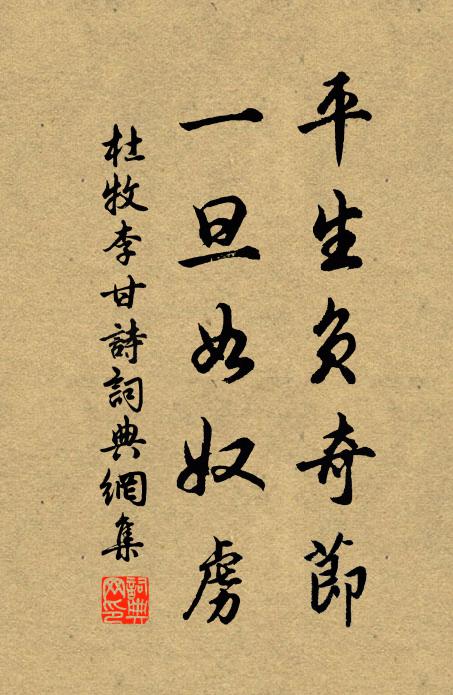 平生負奇節
一旦如奴虜
杜牧李甘詩詞典網集
詞典網印